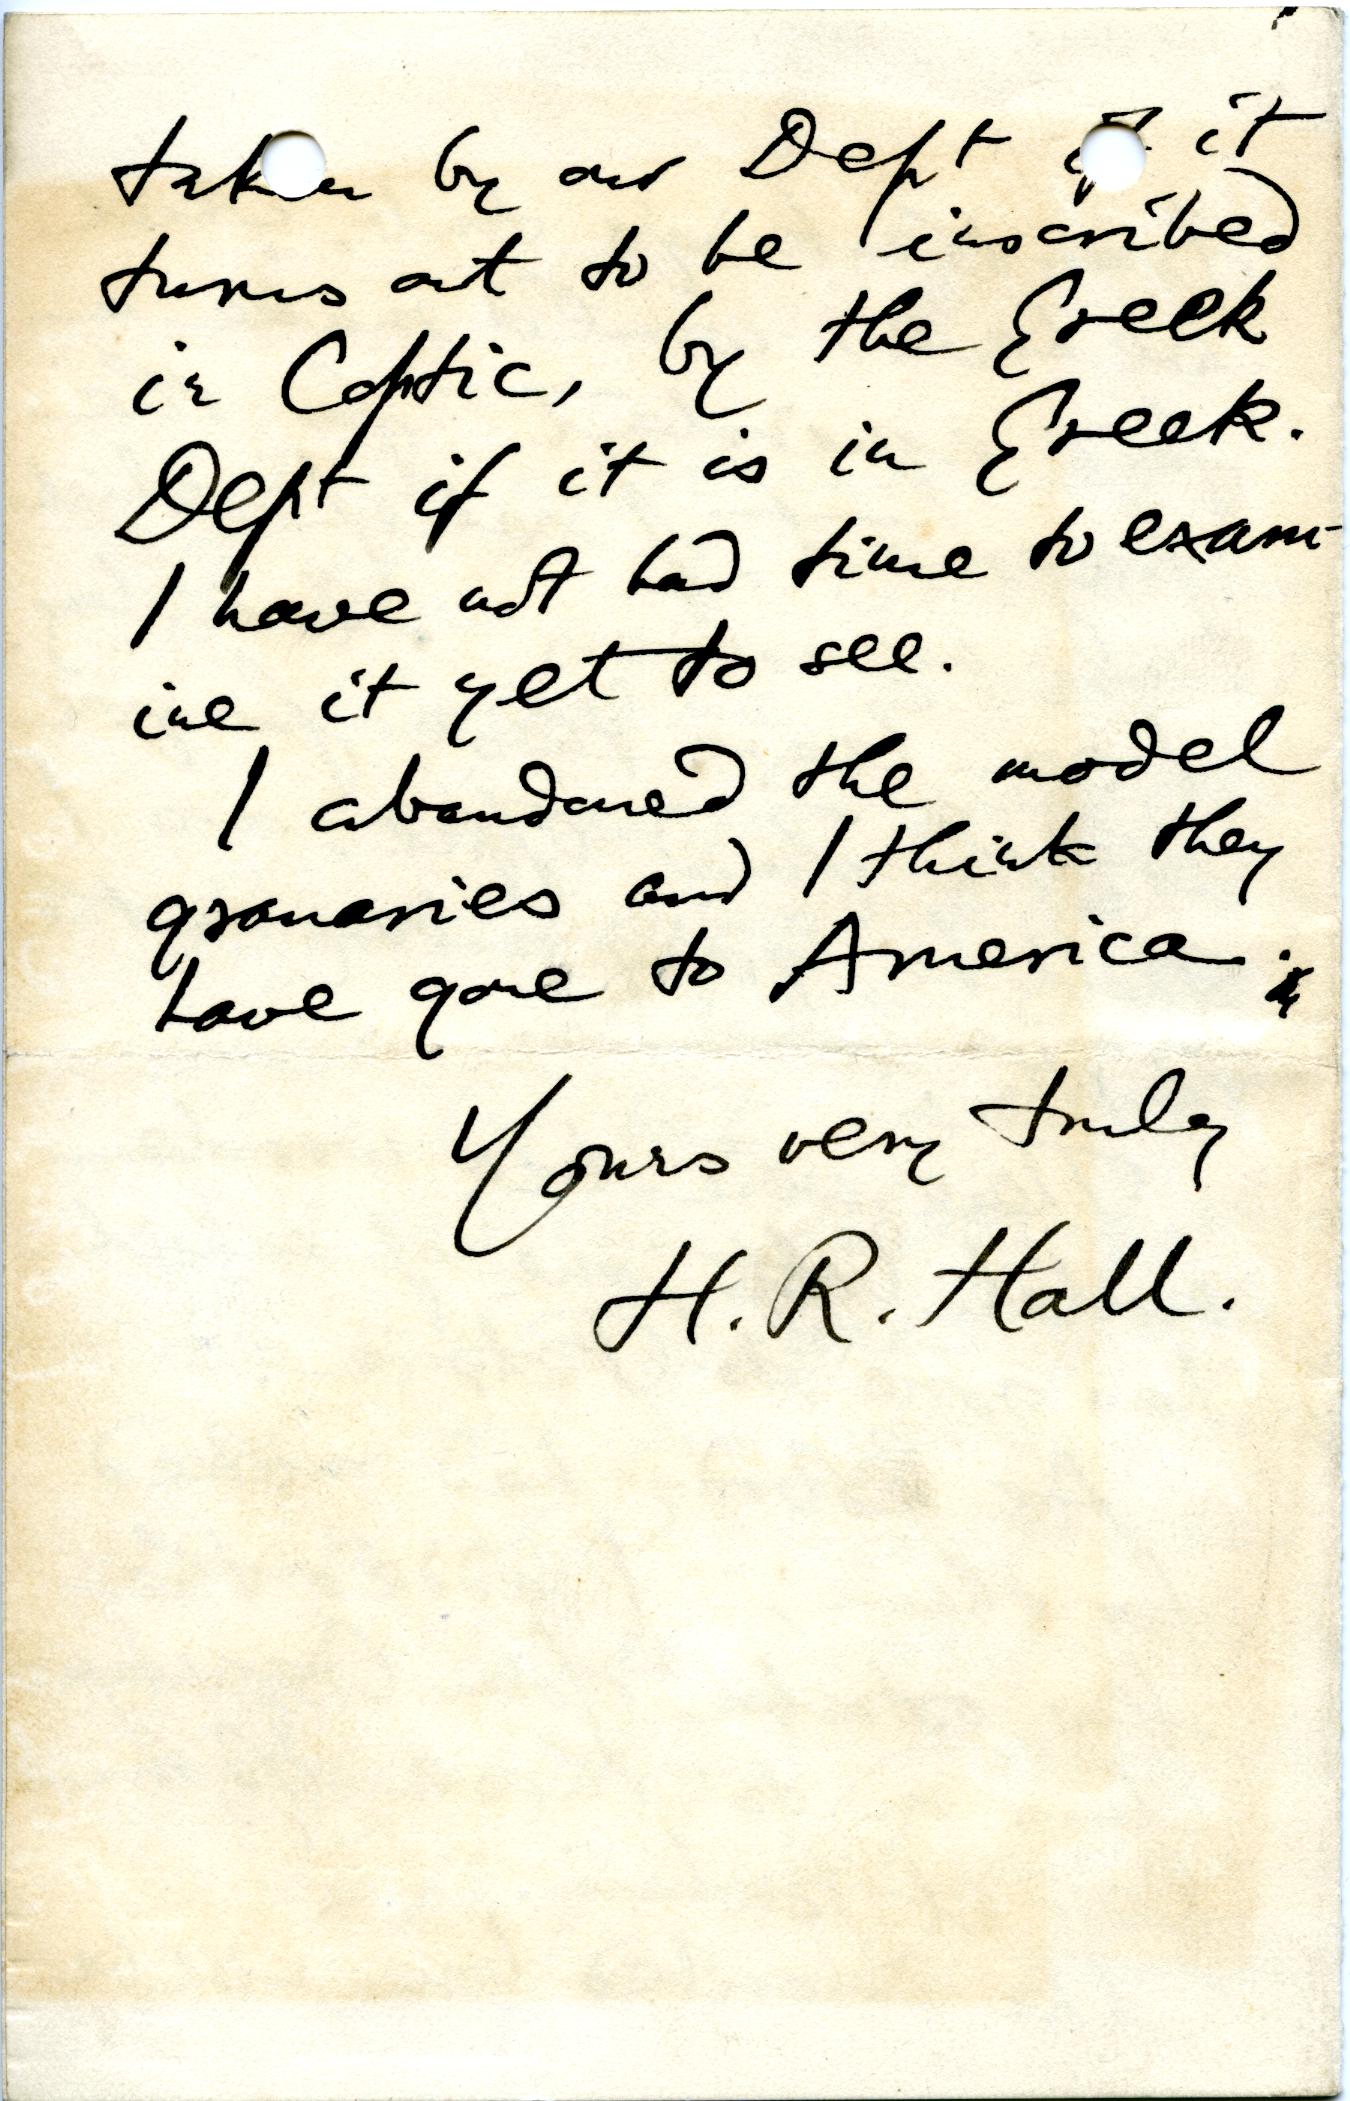 taken by our Dept if it
turns out to be inscribed
in Coptic, by the Greek
Dept if it is in Greek.
I have not had time to exam-
ine it yet to see.
I abandoned the model
granaries and I think they
have gone to America.
Yours very truly
H. R. Hall.